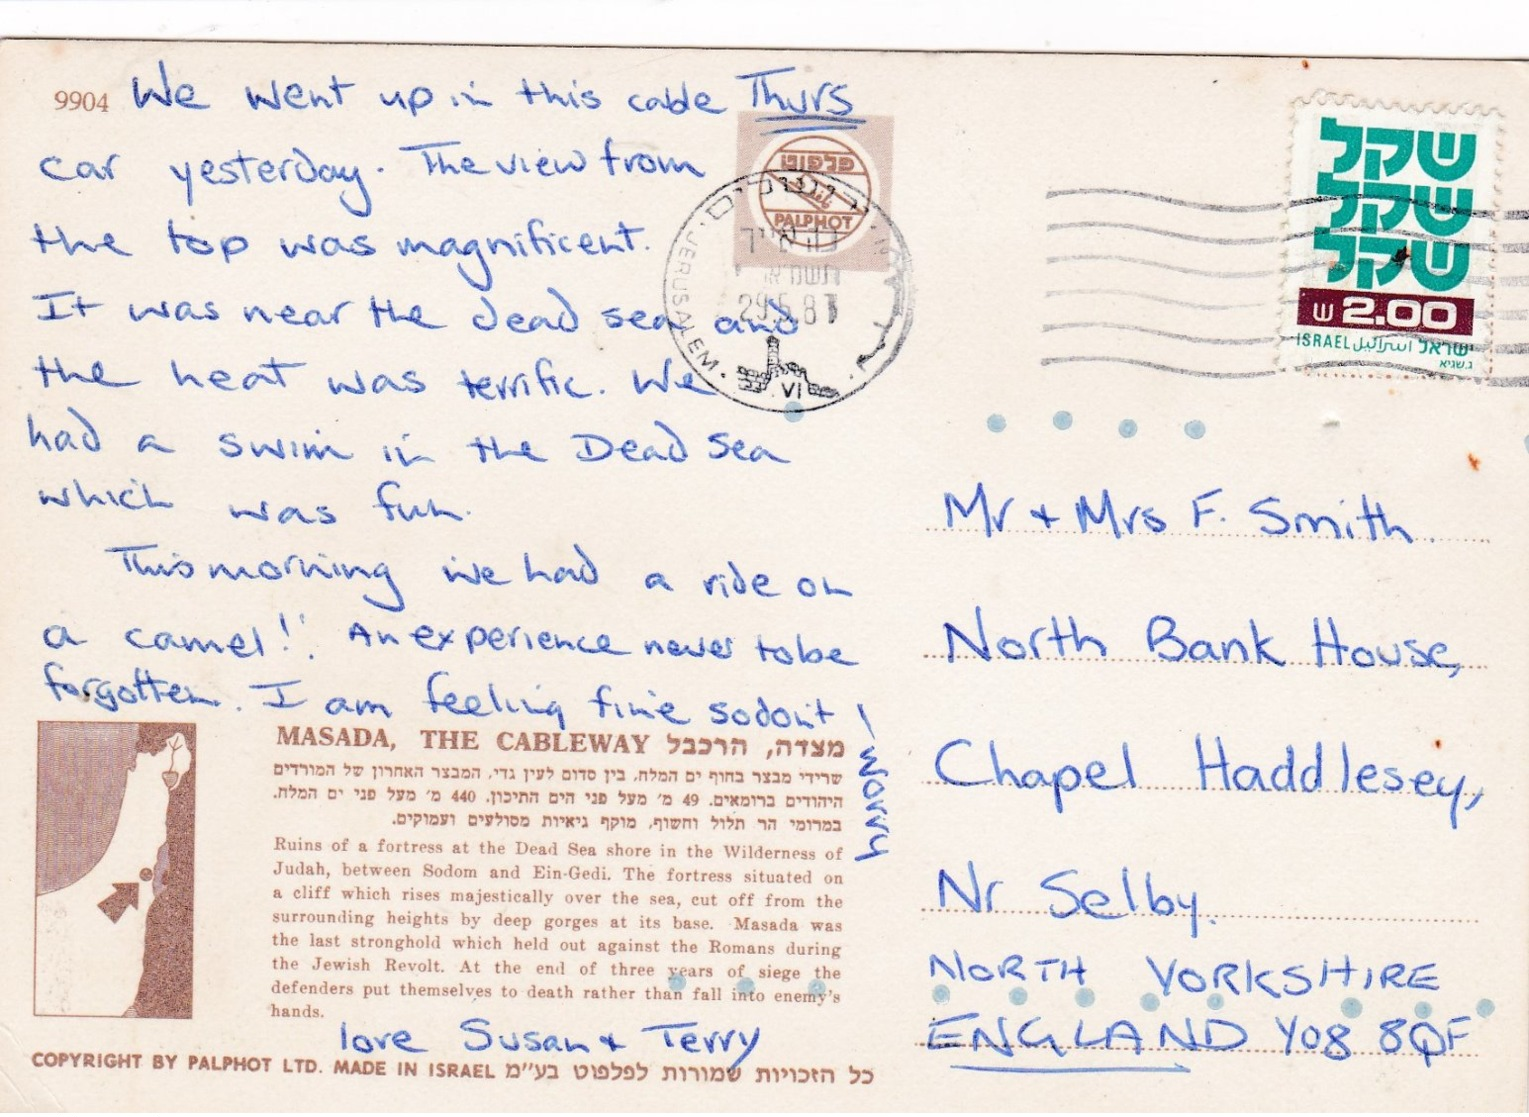 9904 We went up in this cable Thurs
car yesterday. The view from
the top was magnificent.
It was near the dead sea and
the heat was terrific. We
had a swim in the Dead Sea
which was fun.
This morning we had a ride on
a camel!! An experience never to be
forgotten. I am feeling fine so don't
worry!
love Susan & Terry
פלפוט
PALPHOT
ירושלים
JERUSALEM
29.5.81
VI
שקל
שקל
שקל
2.00
ISRAEL اسرائيل ישראל
Mr + Mrs F. Smith.
North Bank House,
Chapel Haddlesey,
Nr Selby.
NORTH YORKSHIRE
ENGLAND YO8 8QF
MASADA, THE CABLEWAY מצדה, הרכבל
שרידי מבצר בחוף ים המלח, בין סדום לעין גדי, המבצר האחרון של המורדים
היהודים ברומאים. 49 מ׳ מעל פני הים התיכון, 440 מ׳ מעל פני ים המלח.
במרומי הר תלול וחשוף, מוקף גיאיות מסולעים ועמוקים.
Ruins of a fortress at the Dead Sea shore in the Wilderness of
Judah, between Sodom and Ein-Gedi. The fortress situated on
a cliff which rises majestically over the sea, cut off from the
surrounding heights by deep gorges at its base. Masada was
the last stronghold which held out against the Romans during
the Jewish Revolt. At the end of three years of siege the
defenders put themselves to death rather than fall into enemy's
hands.
COPYRIGHT BY PALPHOT LTD. MADE IN ISRAEL כל הזכויות שמורות לפלפוט בע"מ